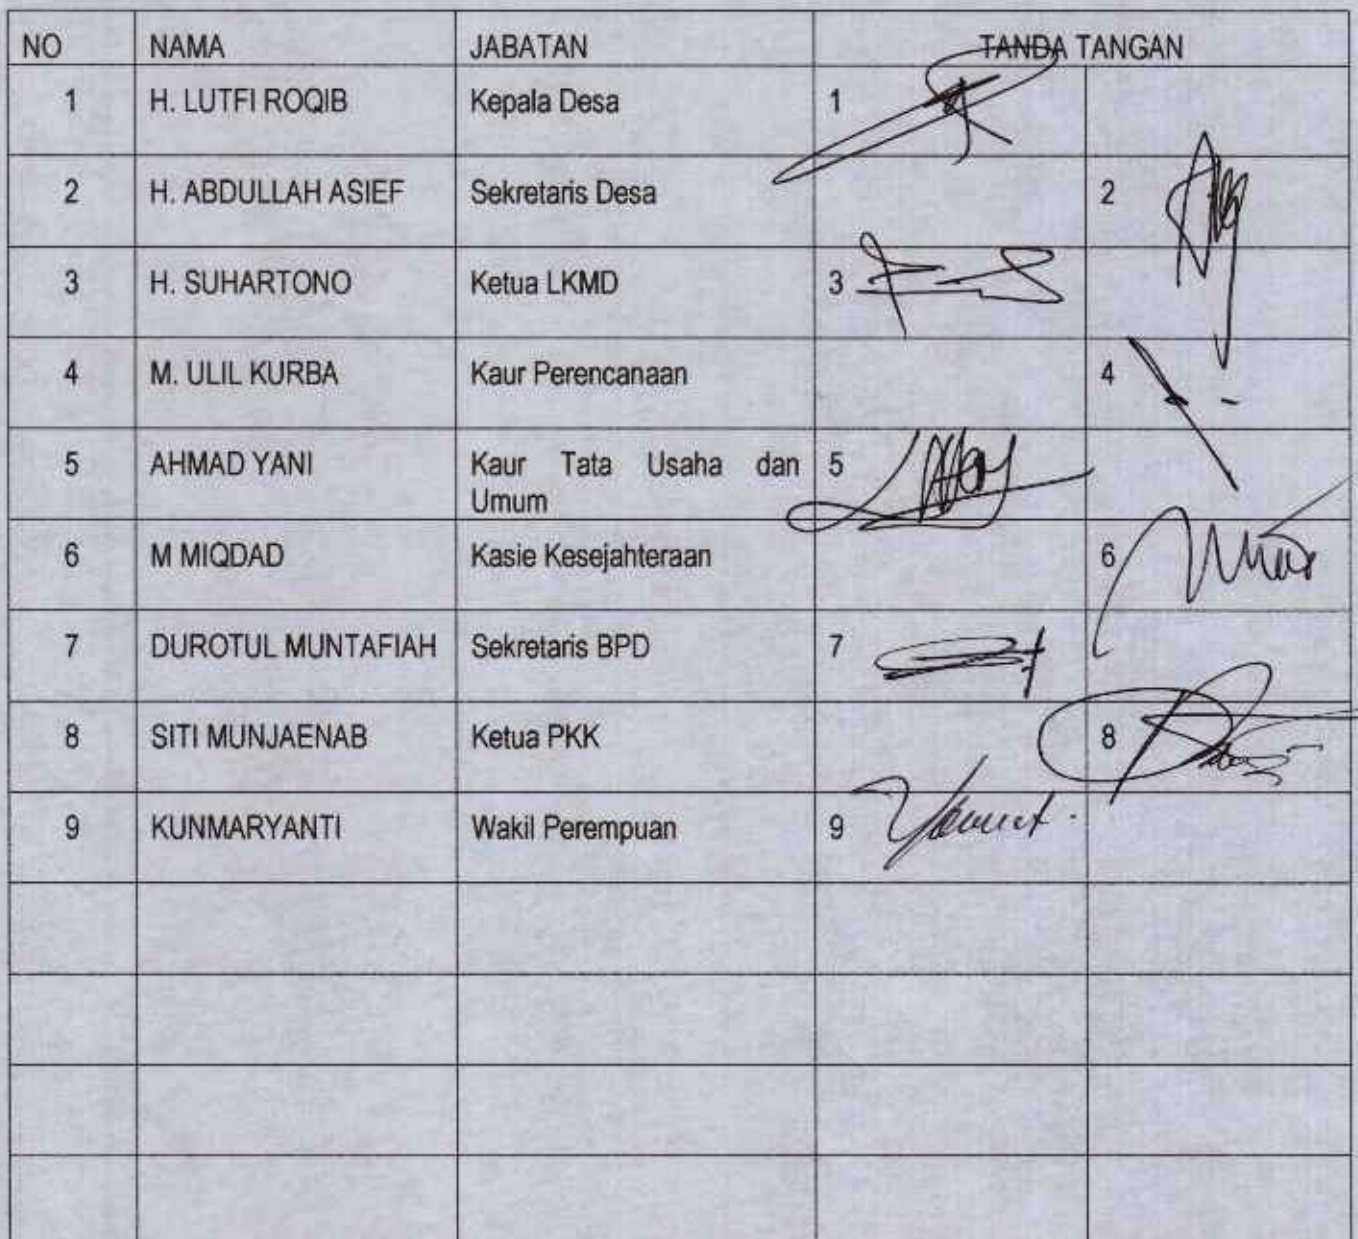 NO NAMA JABATAN TANDA TANGAN
1 H. LUTFI ROQIB Kepala Desa 1
2 H. ABDULLAH ASIEF Sekretaris Desa 2
3 H. SUHARTONO Ketua LKMD 3
4 M. ULIL KURBA Kaur Perencanaan 4
5 AHMAD YANI Kaur Tata Usaha dan 5
Umum
6 M MIQDAD Kasie Kesejahteraan 6
7 DUROTUL MUNTAFIAH Sekretaris BPD 7
8 SITI MUNJAENAB Ketua PKK 8
9 KUNMARYANTI Wakil Perempuan 9